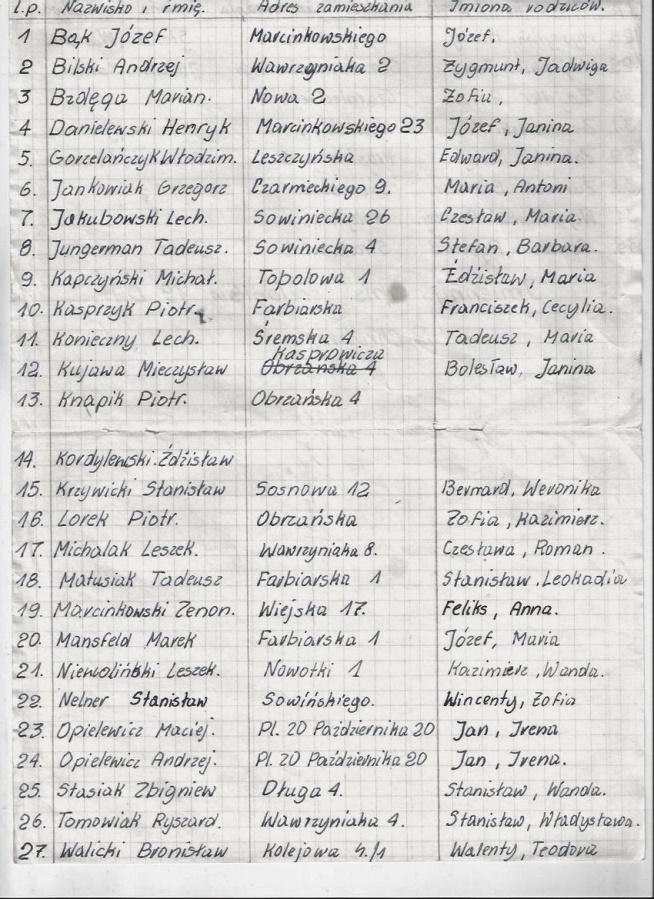 l.p. Nazwisko i imię. Adres zamieszkania Imiona rodziców.
1 Bąk Józef Marcinkowskiego Józef.
2 Bilski Andrzej Wawrzyniaka 2 Zygmunt, Jadwiga
3 Brdęga Marian. Nowa 2 Zofia,
4 Danielewski Henryk Marcinkowskiego 23 Józef, Janina
5. Gorzelańczyk Włodzim. Leszczyńska Edward, Janina.
6. Jankowiak Grzegorz Czarnieckiego 9. Maria, Antoni
7. Jakubowski Lech. Sowiniecka 26 Czesław, Maria.
8. Jungerman Tadeusz. Sowiniecka 4 Stefan, Barbara.
9. Kapczyński Michał. Topolowa 1 Edzisław, Maria
10. Kasprzyk Piotr. Farbiarska Franciszek, Cecylia.
11. Konieczny Lech. Śremska 4 Tadeusz, Maria
Kasprowicza
12. Kujawa Mieczysław Obrzańska 4 Bolesław, Janina
13. Knapik Piotr. Obrzańska 4
14. Kordylewski Zdzisław
15. Krzywicki Stanisław Sosnowa 12 Bernard, Weronika
16. Lorek Piotr. Obrzańska Zofia, Kazimierz.
17. Michalak Leszek. Wawrzyniaka 8. Czesława, Roman.
18. Matusiak Tadeusz Farbiarska 1 Stanisław, Leokadia
19. Marcinkowski Zenon. Wiejska 17. Feliks, Anna.
20. Mansfeld Marek Farbiarska 1 Józef, Maria
21. Leszek. Nowotki 1 Kazimierz, Wanda.
22. Nelner Stanisław Sowińskiego. Wincenty, Zofia
23. Opielewicz Maciej. Pl. 20 Października 20 Jan, Irena
24. Opielewicz Andrzej. Pl. 20 Października 20 Jan, Irena.
25. Stasiak Zbigniew Długa 4. Stanisław, Wanda.
26. Tomowiak Ryszard. Wawrzyniaka 4. Stanisław, Władysława.
27. Walicki Bronisław Kolejowa 4./1 Walenty, Teodora